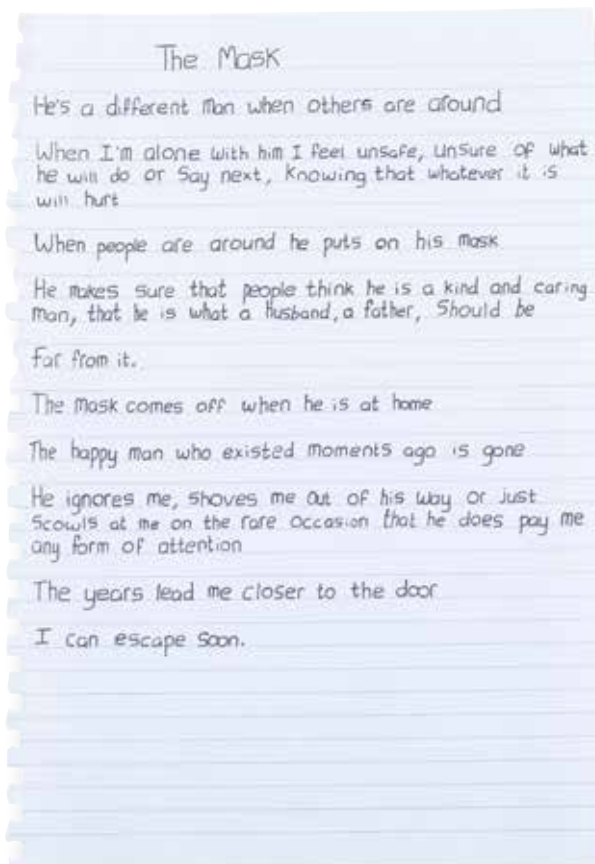 The Mask
He's a different man when others are around
When I'm alone with him I feel unsafe, unsure of what
he will do or say next, knowing that whatever it is
will hurt
When people are around he puts on his mask
He makes sure that people think he is a kind and caring
man, that he is what a husband, a father, should be
Far from it.
The mask comes off when he is at home
The happy man who existed moments ago is gone
He ignores me, shoves me out of his way or just
scowls at me on the rare occasion that he does pay me
any form of attention
The years lead me closer to the door
I can escape soon.